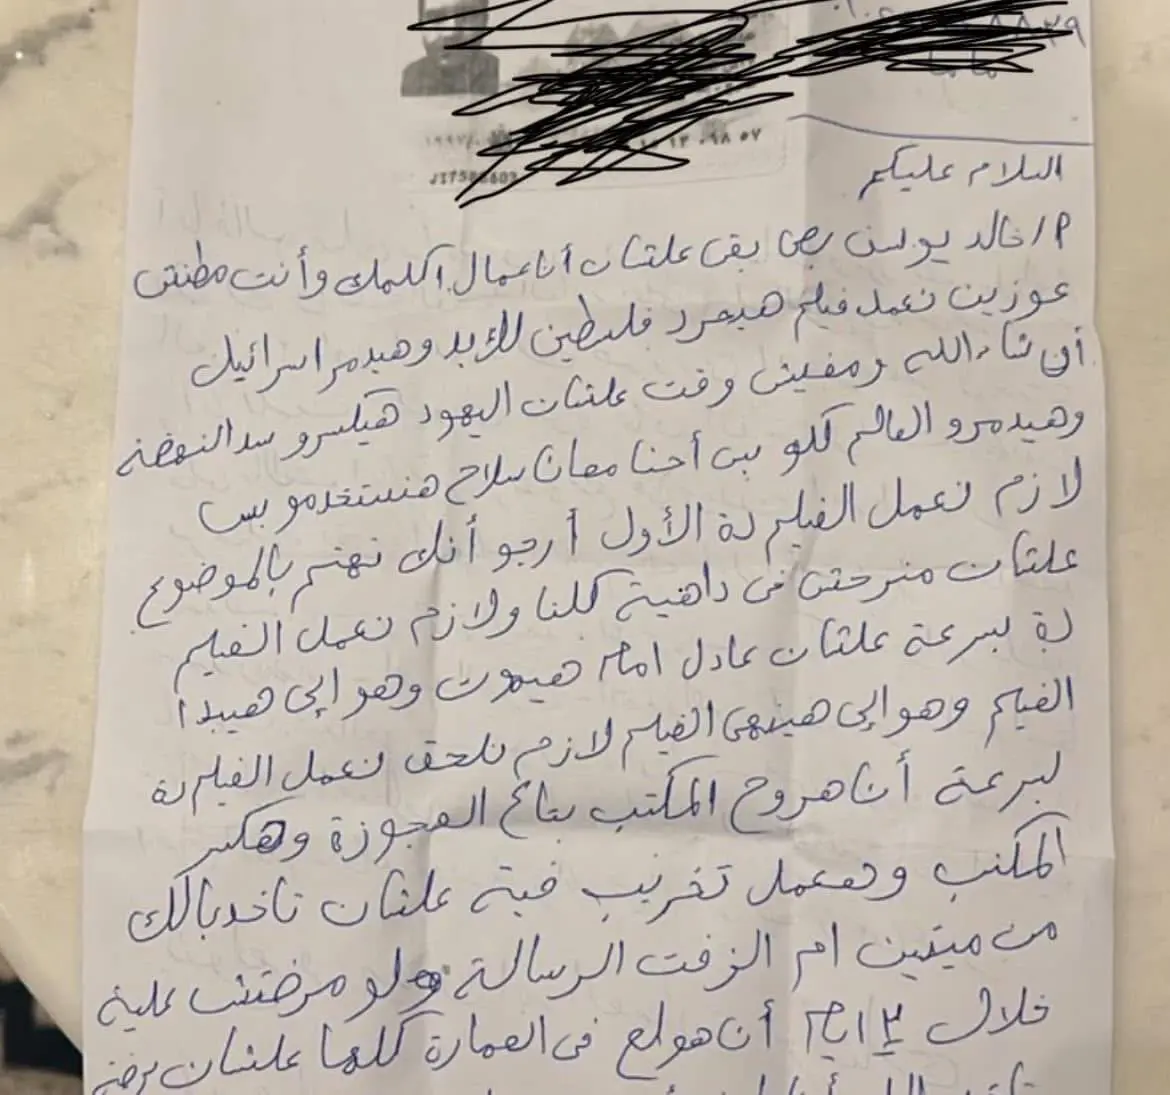 ٨٨٢٩
ماما
السلام عليكم
م/ خالد يوسف بص بقى علشان أنا عمال اكلمك وأنت مطنش
عوزين نعمل فيلم هيحرر فلسطين للأبد وهيدمر اسرائيل
أن شاء الله ومفيش وقت علشان اليهود هيكسرو سد النهضة
وهيدمرو العالم كلو بس أحنا معانا سلاح هنستخدمو بس
لازم نعمل الفيلم دة الأول أرجو أنك تهتم بالموضوع
علشان منرحش فى داهية كلنا ولازم نعمل الفيلم
دة بسرعة علشان عادل امام هيموت وهو الى هيبدا
الفيلم وهو الى هينهى الفيلم لازم نلحق نعمل الفيلم دة
بسرعة أنا هروح المكتب بتاع العجوزة وهكسر
المكتب وهعمل تخريب فية علشان تاخد بالك
من ميتين ام الزفت الرسالة ولو مردتش علية
خلال ٣ ايام أنا هولع فى العمارة كلها علشان برضة